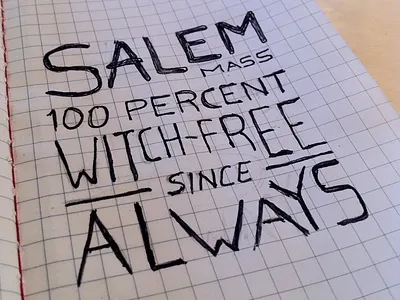 SALEM
MASS
100 PERCENT
WITCH-FREE
SINCE
ALWAYS